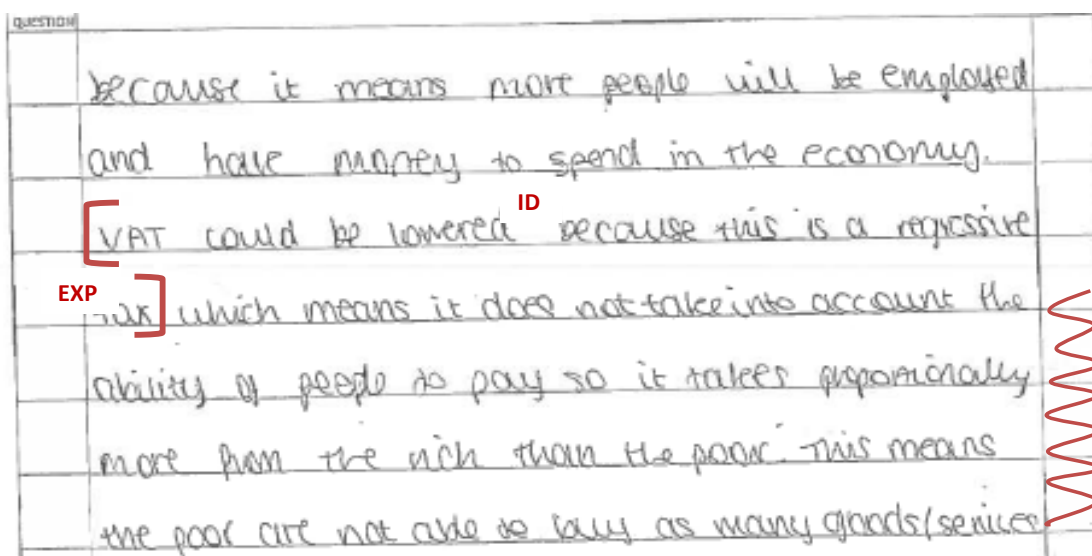 question
because it means more people will be employed
and have money to spend in the economy.
ID
VAT could be lowered because this is a regressive
EXP
tax which means it does not take into account the
ability of people to pay so it takes proportionally
more from the rich than the poor. This means
the poor are not able to buy as many goods/services